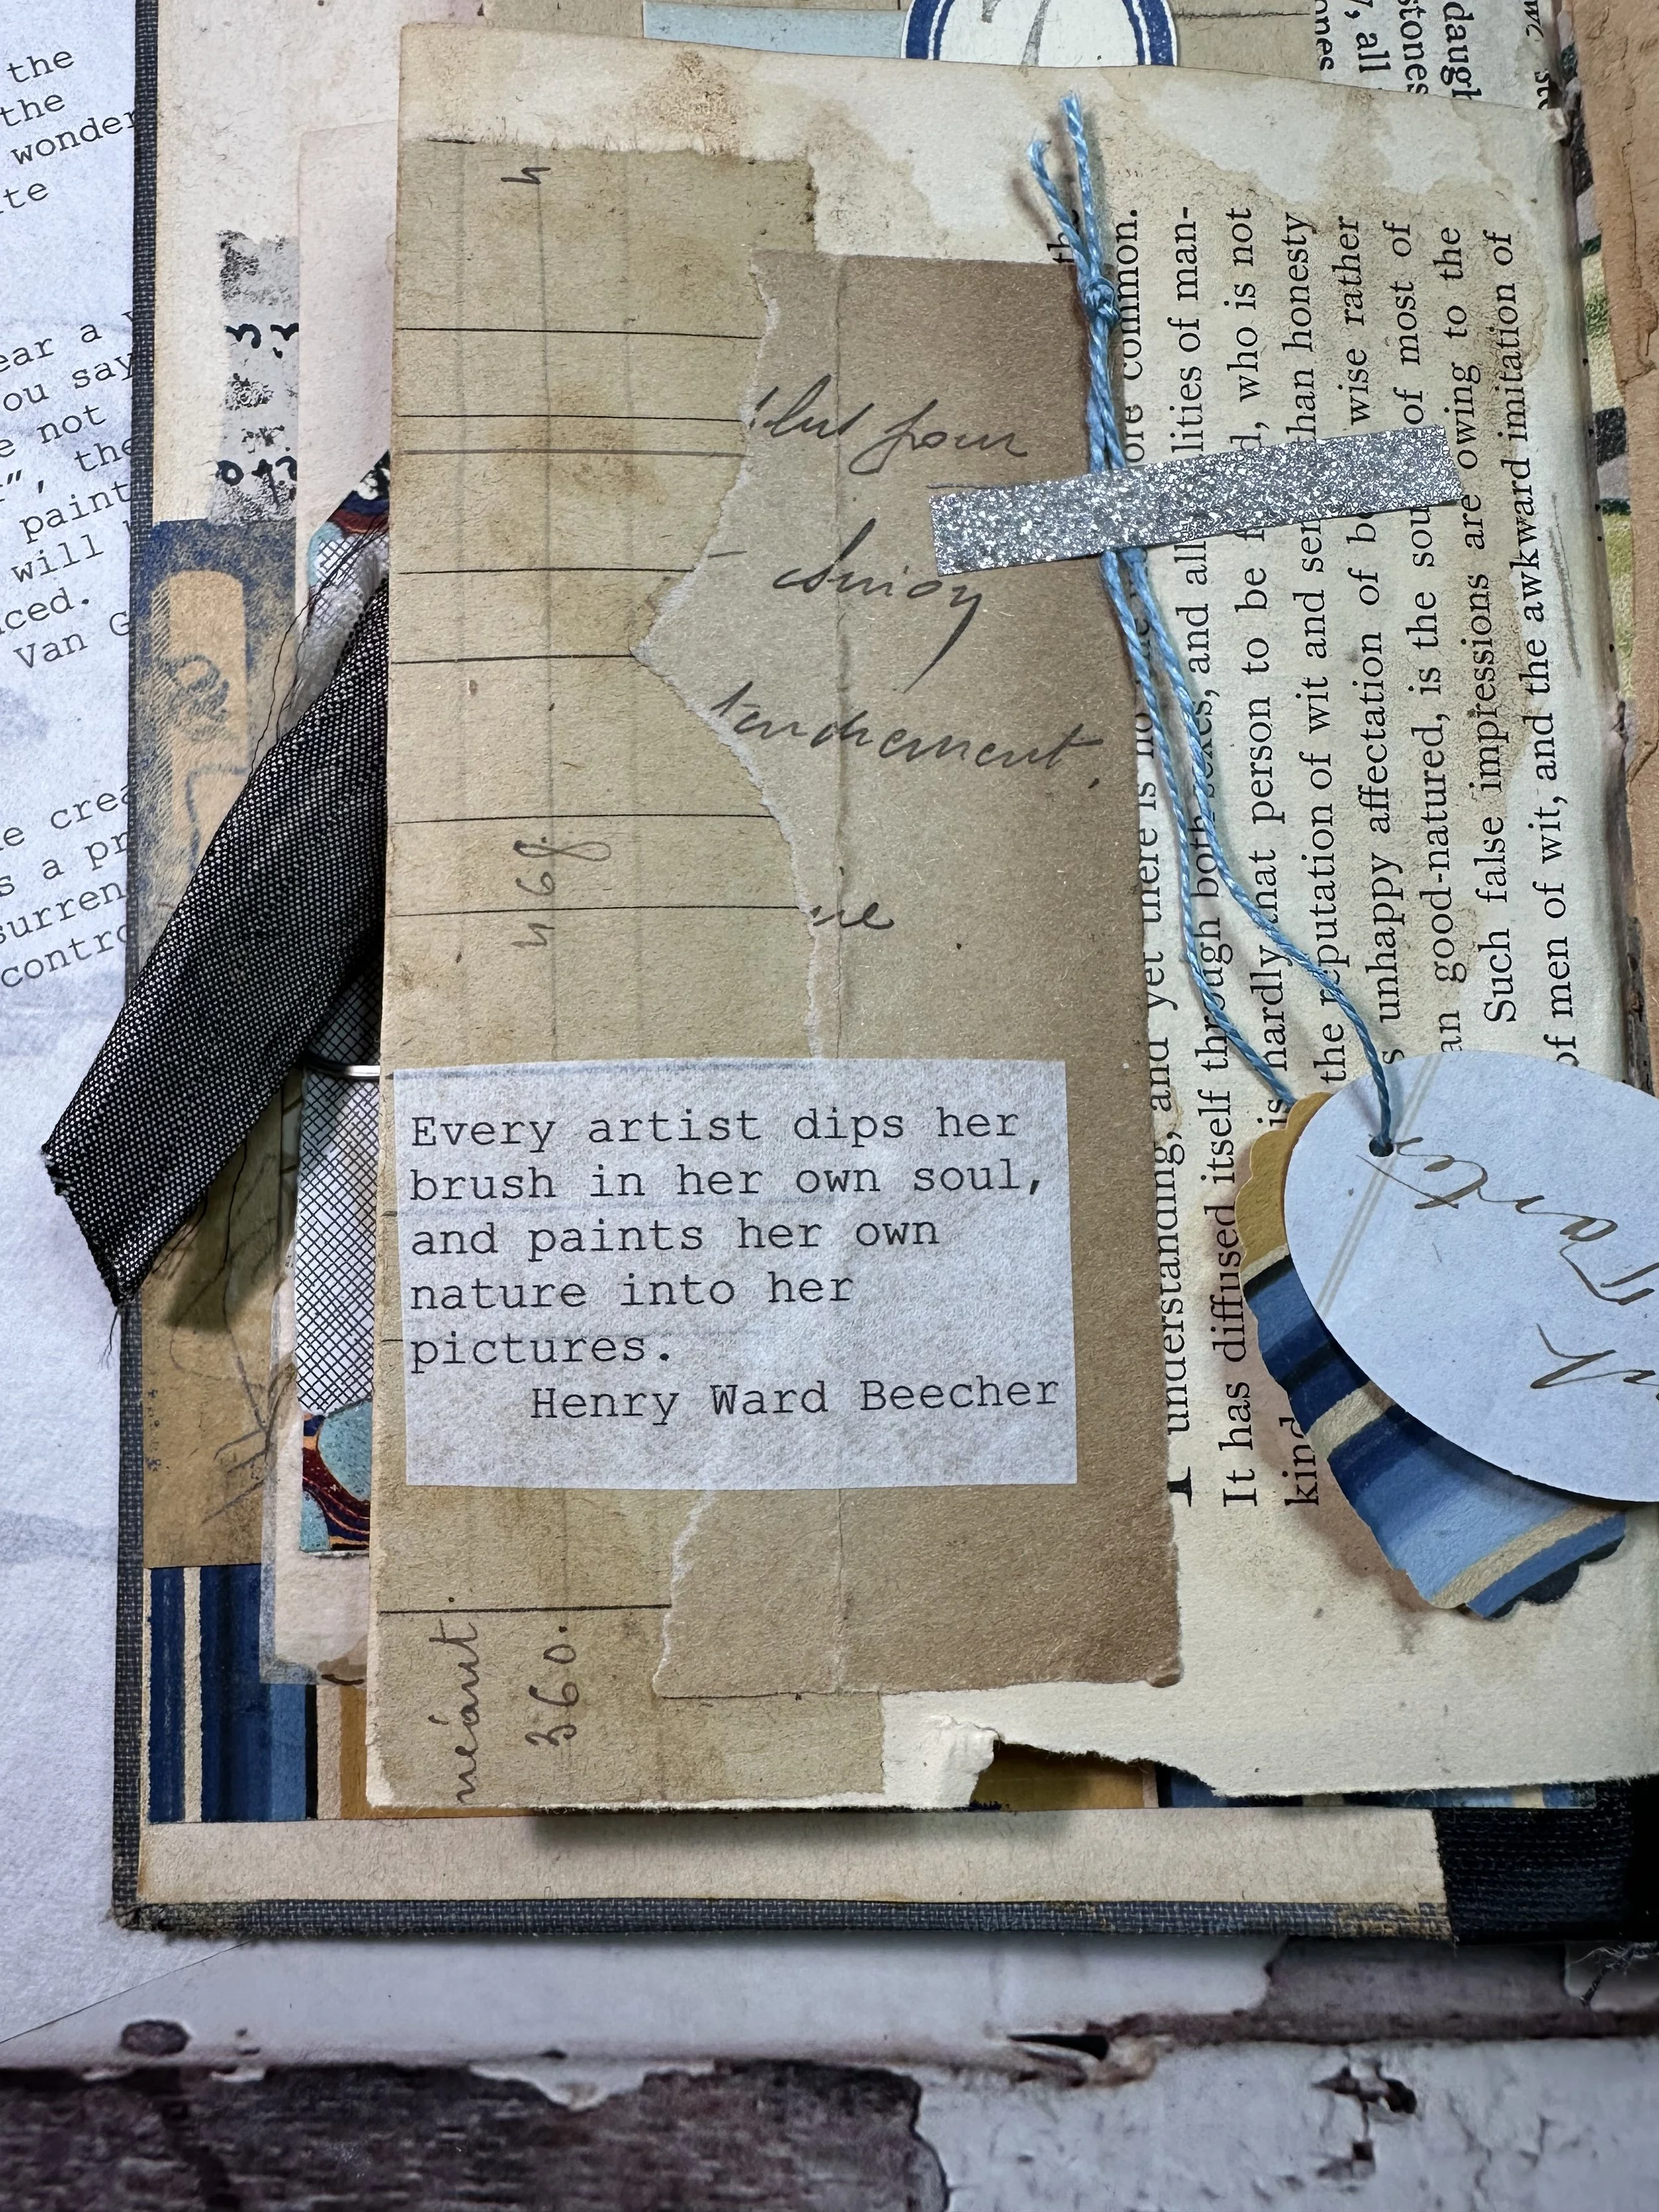 the
the
wonder
ear a
ou say
e not
", the
paint
will
ced.
Van G
e crea
s a pr
surren
contro
4
pour
tendrement.
468.
Every artist dips her
brush in her own soul,
and paints her own
nature into her
pictures.
Henry Ward Beecher
néant.
360.
daugh
stones
, all
the
ore common.
understanding, and yet there is no
It has diffused itself through both sexes, and all lities of man-
kind is hardly that person to be f d, who is not
the reputation of wit and sen than honesty
s unhappy affectation of be wise rather
an good-natured, is the sou of most of
Such false impressions are owing to the
of men of wit, and the awkward imitation of